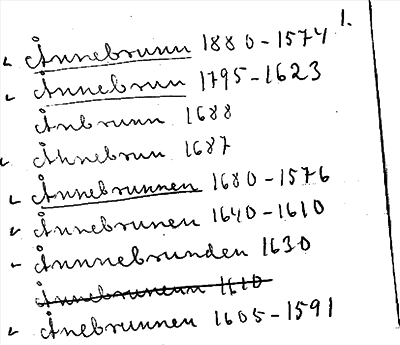 1.
Ånnebrunn 1880-1574
Ånnebrun 1795-1623
Ånbrunn 1688
Åhnebrun 1687
Ånnebrunnen 1680-1576
Ånnebrunen 1640-1610
Ånnnebrunden 1630
1610
Ånebrunnen 1605-1591